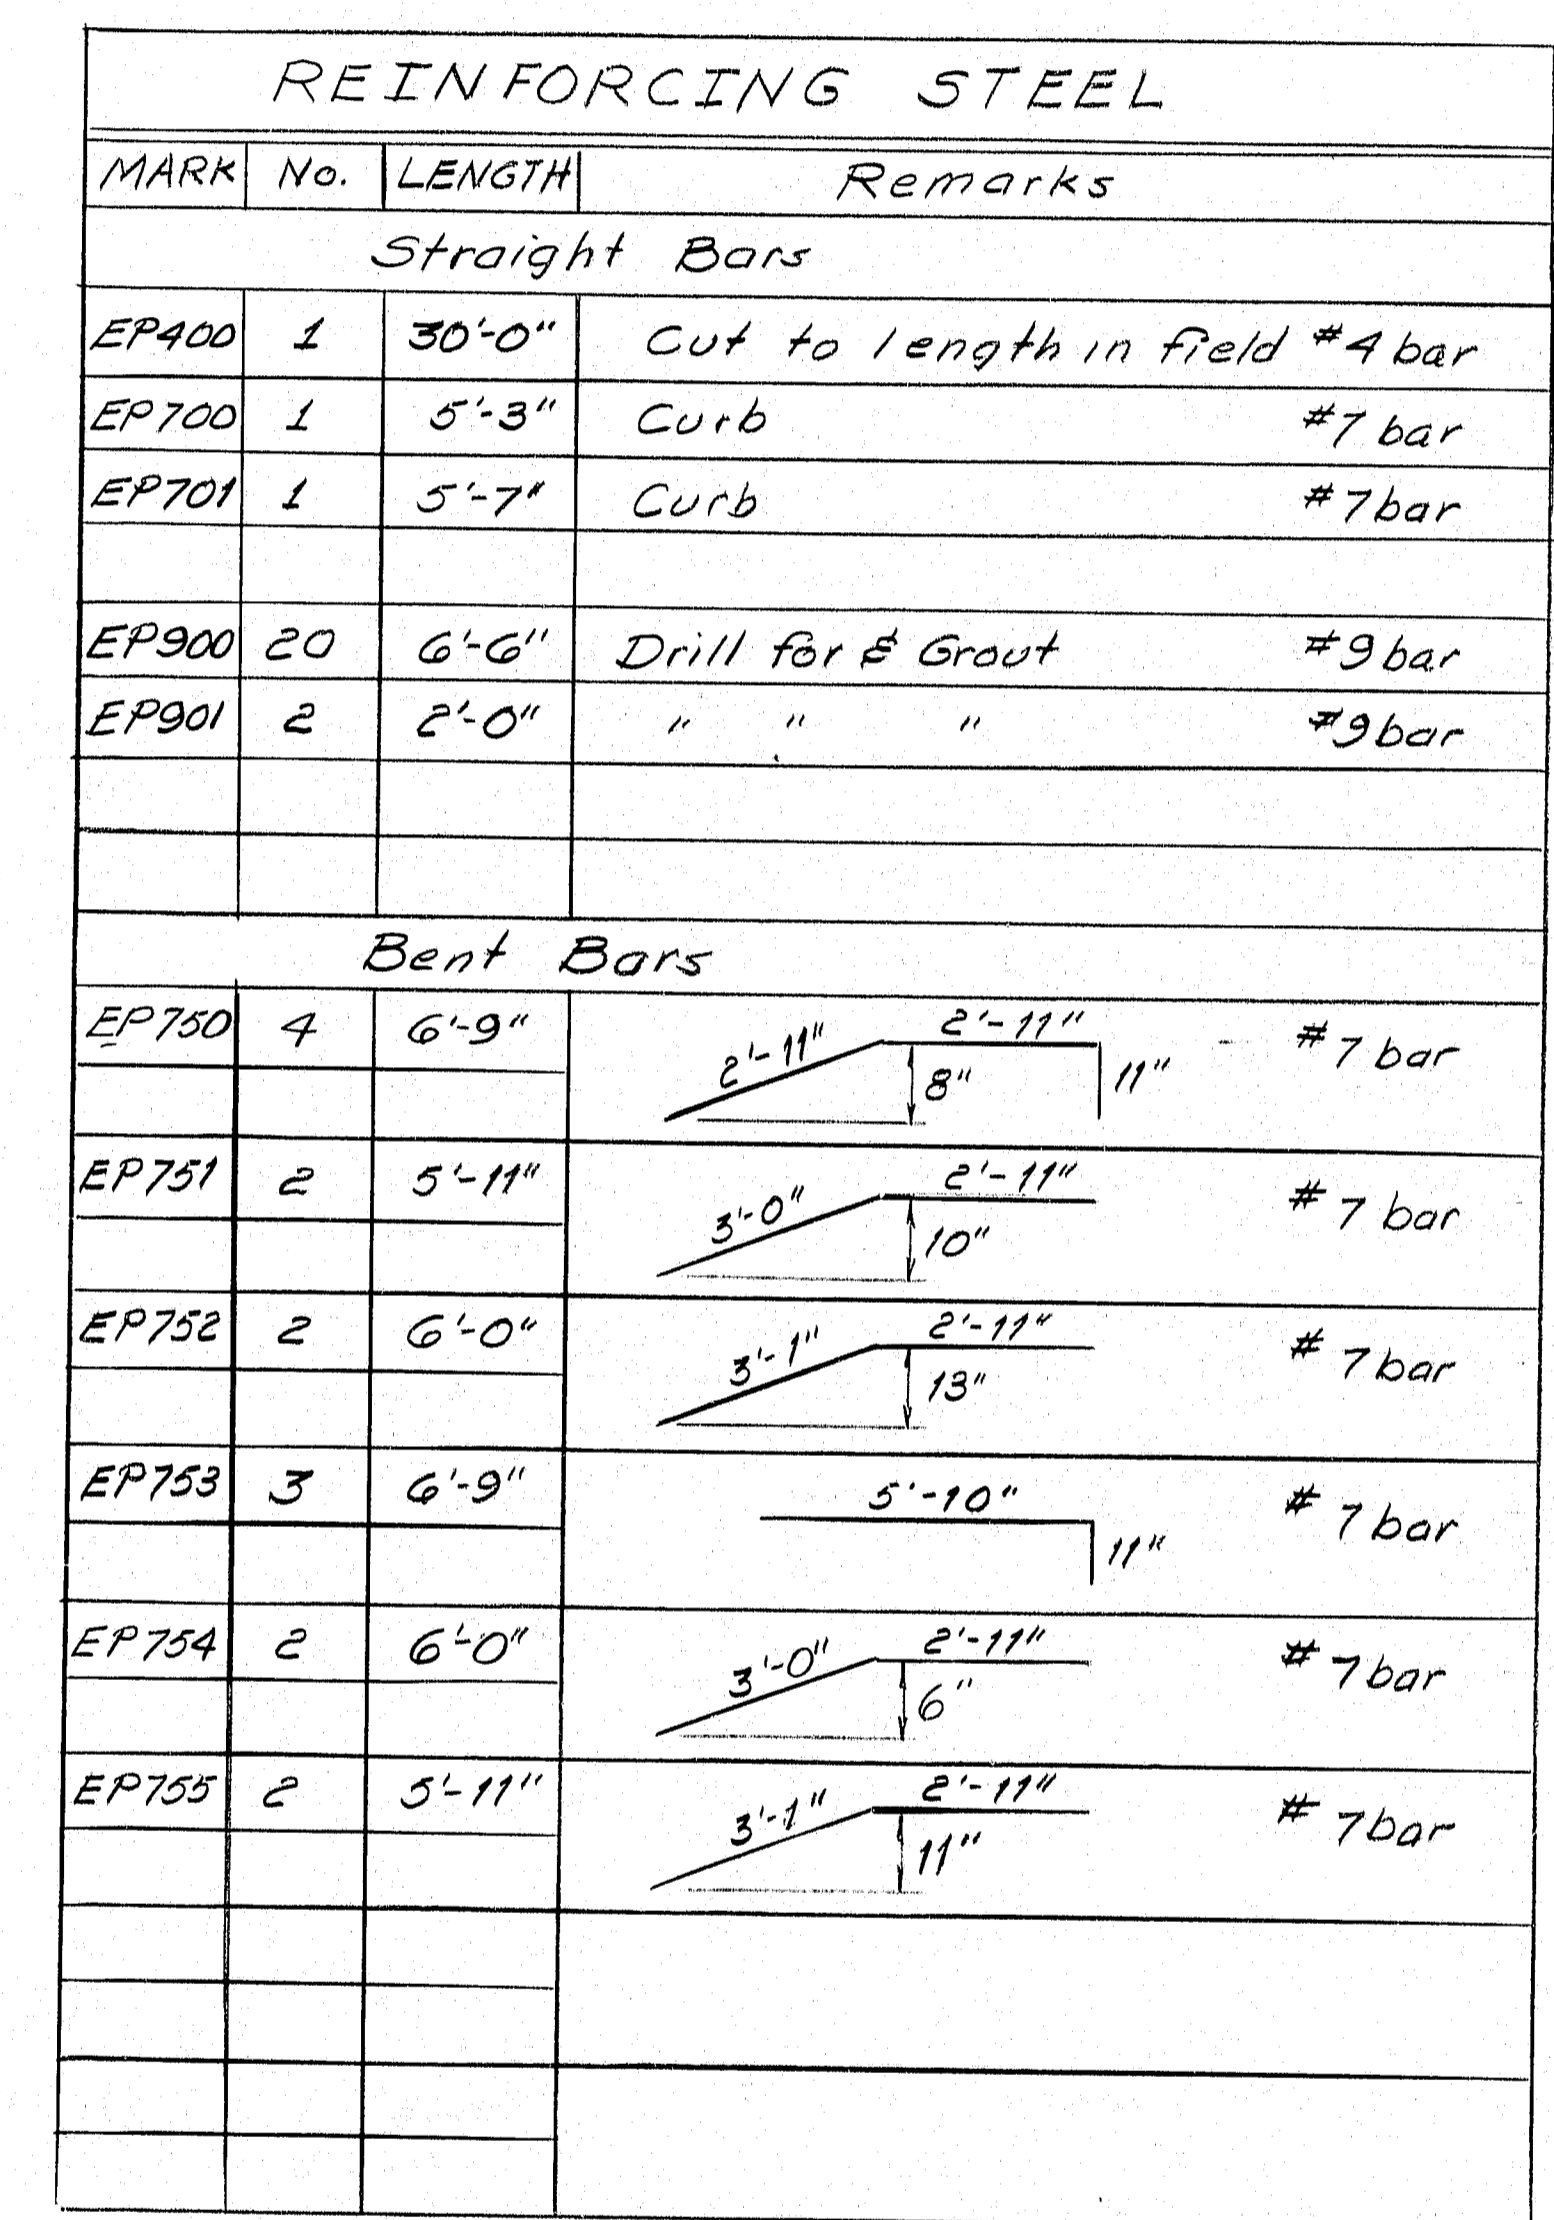 REINFORCING STEEL
MARK No. LENGTH Remarks
Straight Bars
EP400 1 30'-0" Cut to length in field #4 bar
EP700 1 5'-3" Curb #7 bar
EP701 1 5'-7" Curb #7 bar
EP900 20 6'-6" Drill for & Grout #9 bar
EP901 2 2'-0" " " " #9 bar
Bent Bars
EP750 4 6'-9" 2'-11" 2'-11" 8" 11" #7 bar
EP751 2 5'-11" 3'-0" 2'-11" 10" #7 bar
EP752 2 6'-0" 3'-1" 2'-11" 13" #7 bar
EP753 3 6'-9" 5'-10" 11" #7 bar
EP754 2 6'-0" 3'-0" 2'-11" 6" #7 bar
EP755 2 5'-11" 3'-1" 2'-11" 11" #7 bar